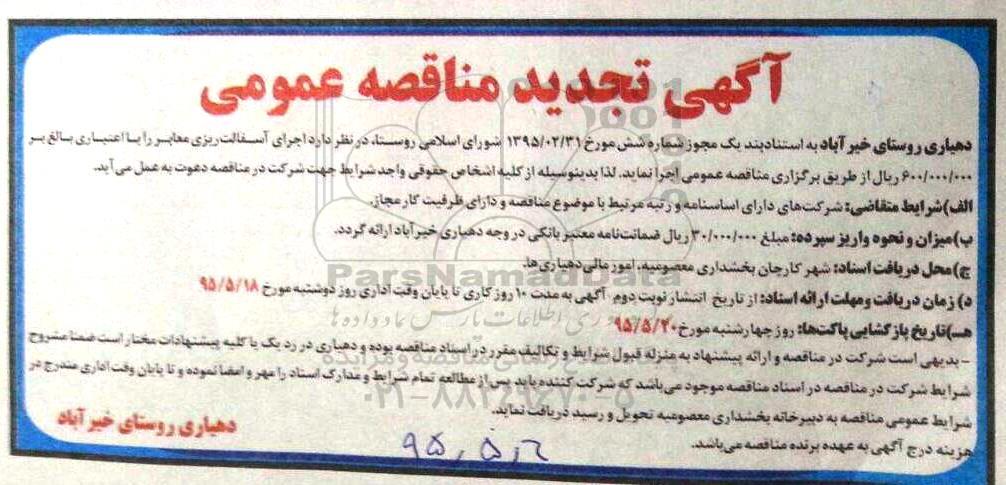 آگهی تجدید مناقصه عمومی
دهیاری روستای خیر آباد به استنادبند یک مجوز شماره شش مورخ ۱۳۹۵/۰۲/۳۱ شورای اسلامی روستا، در نظر دارد اجرای آسفالت‌ریزی معابر را با اعتباری بالغ بر
۶۰۰/۰۰۰/۰۰۰ ریال از طریق برگزاری مناقصه عمومی اجرا نماید. لذا بدینوسیله از کلیه اشخاص حقوقی واجد شرایط جهت شرکت در مناقصه دعوت به عمل می‌آید.
الف)شرایط متقاضی: شرکت‌های دارای اساسنامه و رتبه مرتبط با موضوع مناقصه و دارای ظرفیت کار مجاز.
ب)میزان و نحوه واریز سپرده: مبلغ ۳۰/۰۰۰/۰۰۰ ریال ضمانت‌نامه معتبر بانکی در وجه دهیاری خیرآباد ارائه گردد.
ج)محل دریافت اسناد: شهر کارچان بخشداری معصومیه، امور مالی دهیاری‌ها.
ParsNamadData
د) زمان دریافت و مهلت ارائه اسناد: از تاریخ انتشار نوبت دوم آگهی به مدت ۱۰ روز کاری تا پایان وقت اداری روز دوشنبه مورخ ۹۵/۵/۱۸
هـ)تاریخ بازگشایی پاکت‌ها: روز چهارشنبه مورخ ۹۵/۵/۲۰
- بدیهی است شرکت در مناقصه و ارائه پیشنهاد به منزله قبول شرایط و تکالیف مقرر در اسناد مناقصه بوده و دهیاری در رد یک یا کلیه پیشنهادات مختار است ضمنا مشروح
شرایط شرکت در مناقصه در اسناد مناقصه موجود می‌باشد که شرکت کننده باید پس از مطالعه تمام شرایط و مدارک اسناد را مهر و امضا نموده و تا پایان وقت اداری مندرج در
۰۲۱-۸۸۳۴۹۶۷۰-۵
شرایط عمومی مناقصه به دبیرخانه بخشداری معصومیه تحویل و رسید دریافت نماید.
هزینه درج آگهی به عهده برنده مناقصه می‌باشد.
دهیاری روستای خیر آباد